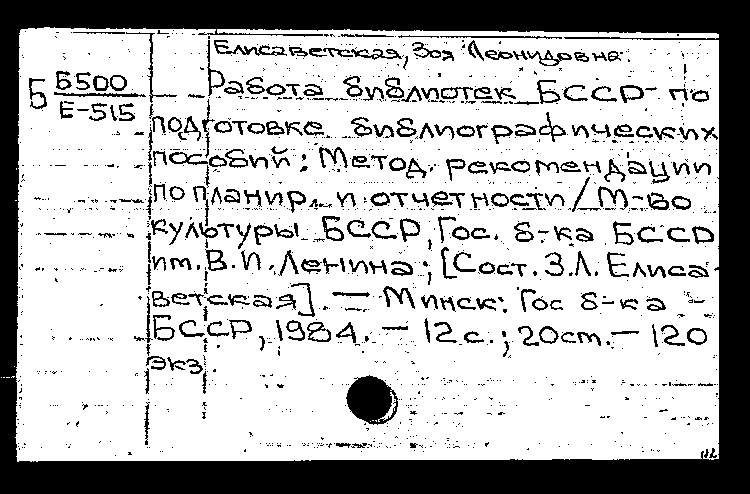 Елисаветская, Зоя Леонидовна.
Б Б500
Е-515
Работа библиотек БССР по
подготовке библиографических
пособий: Метод. рекомендации
по планир. и отчетности / М-во
культуры БССР, Гос. б-ка БССР
им. В.И. Ленина; [Сост. З.Л. Елиса-
ветская]. — Минск: Гос б-ка
БССР, 1984. — 12 с.; 20 см. — 120
экз.